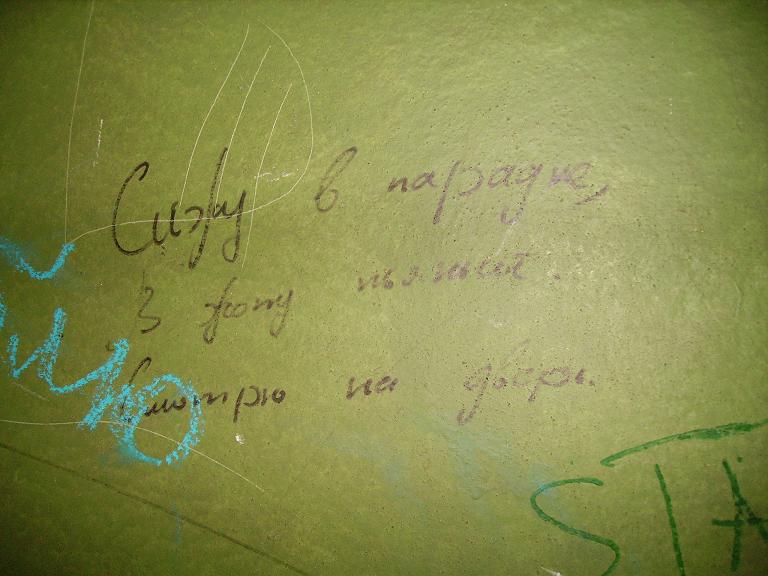 Сижу в парадне,
В жопу пьяный.
Смотрю на дверь.
йцю
STA